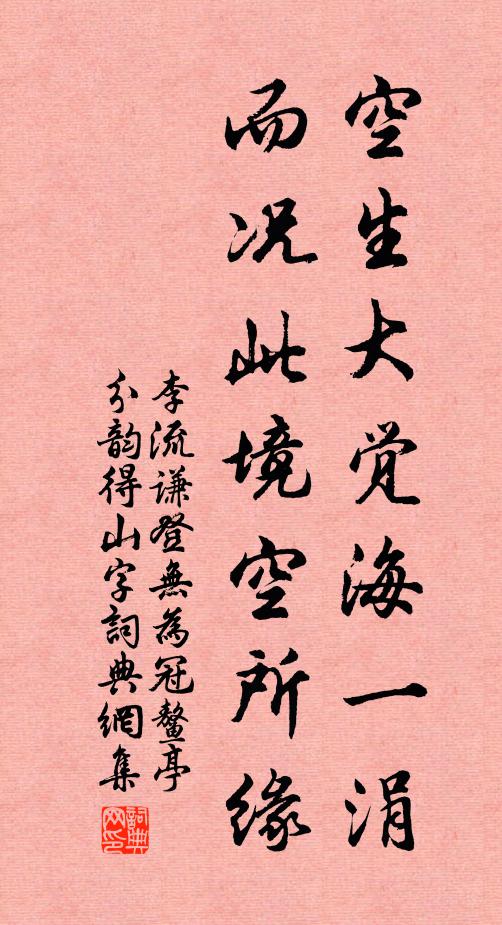 空生大觉海一涓
而况此境空所缘
李流谦登無為冠鳌亭
分韵得山字詞典網集
詞典网印